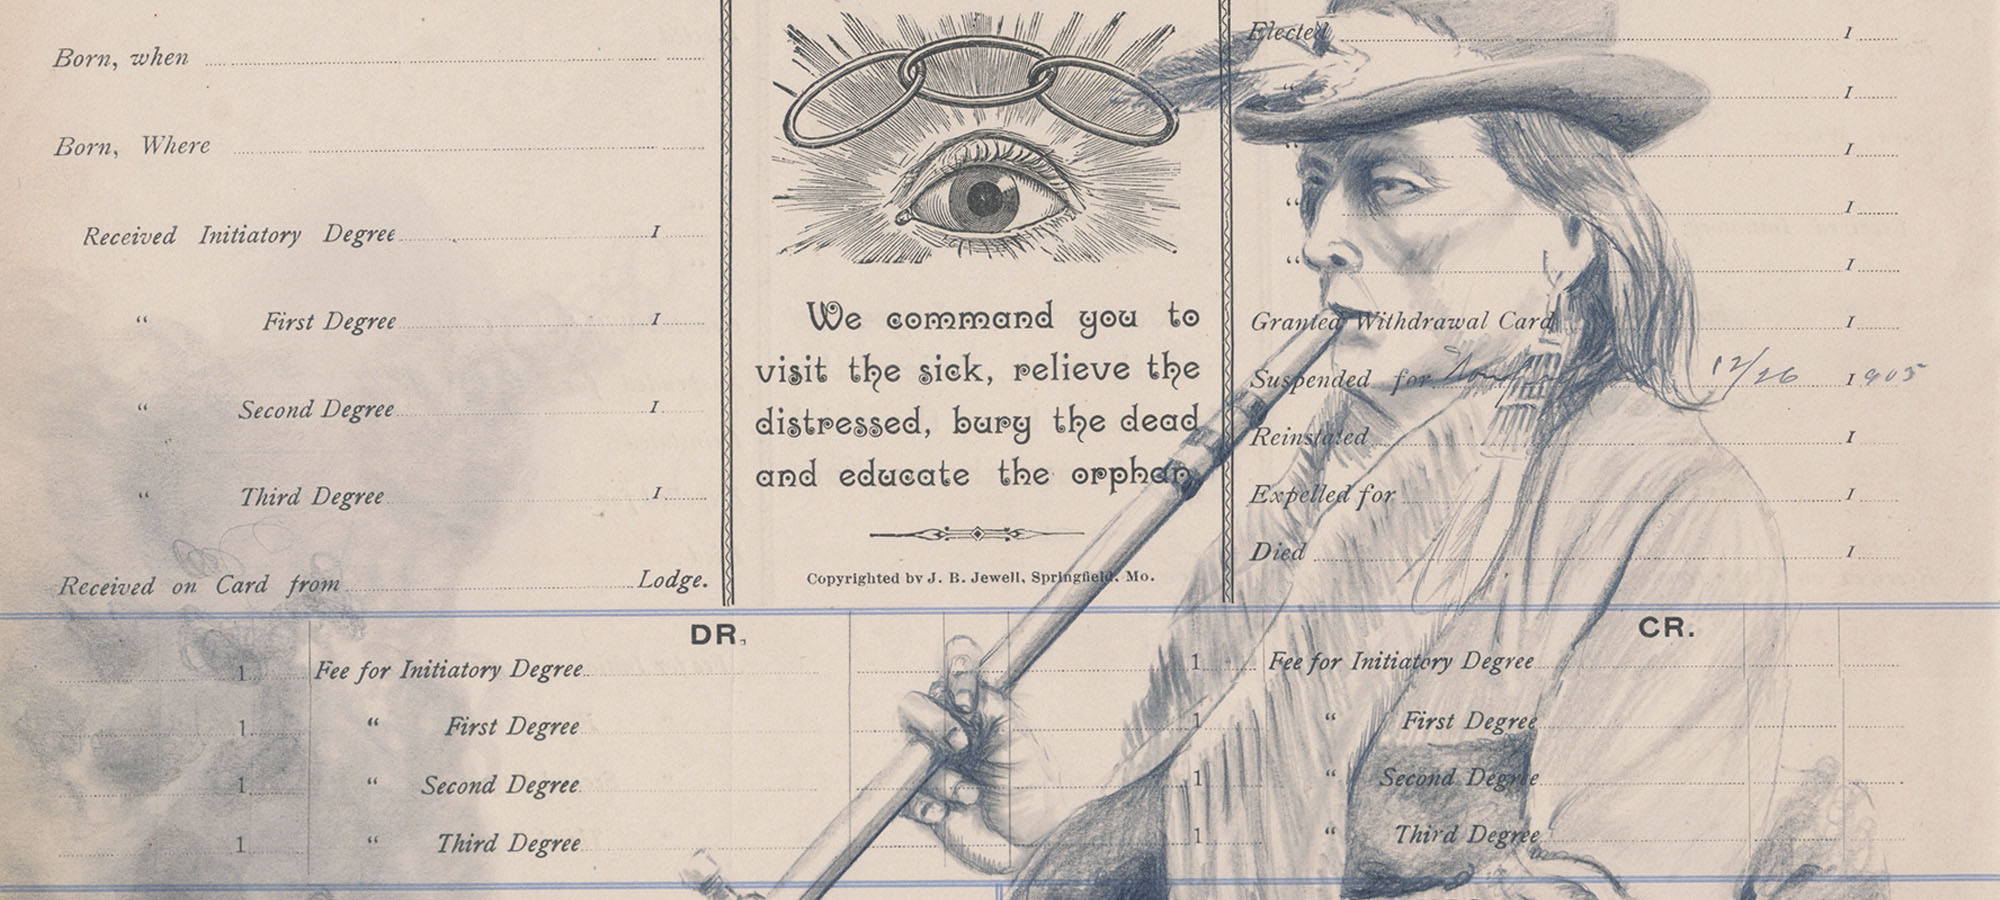 Born, when
Born, Where
Received Initiatory Degree I
“ First Degree I
“ Second Degree I
“ Third Degree I
Received on Card from Lodge.
We command you to
visit the sick, relieve the
distressed, bury the dead
and educate the orphan.
Copyrighted by J. B. Jewell, Springfield, Mo.
Elected I
“ I
“ I
“ I
“ I
Granted Withdrawal Card I
Suspended for 12/26 1905
Reinstated I
Expelled for I
Died I
DR.
1 Fee for Initiatory Degree
1 “ First Degree
1 “ Second Degree
1 “ Third Degree
CR.
1 Fee for Initiatory Degree
1 “ First Degree
1 “ Second Degree
1 “ Third Degree